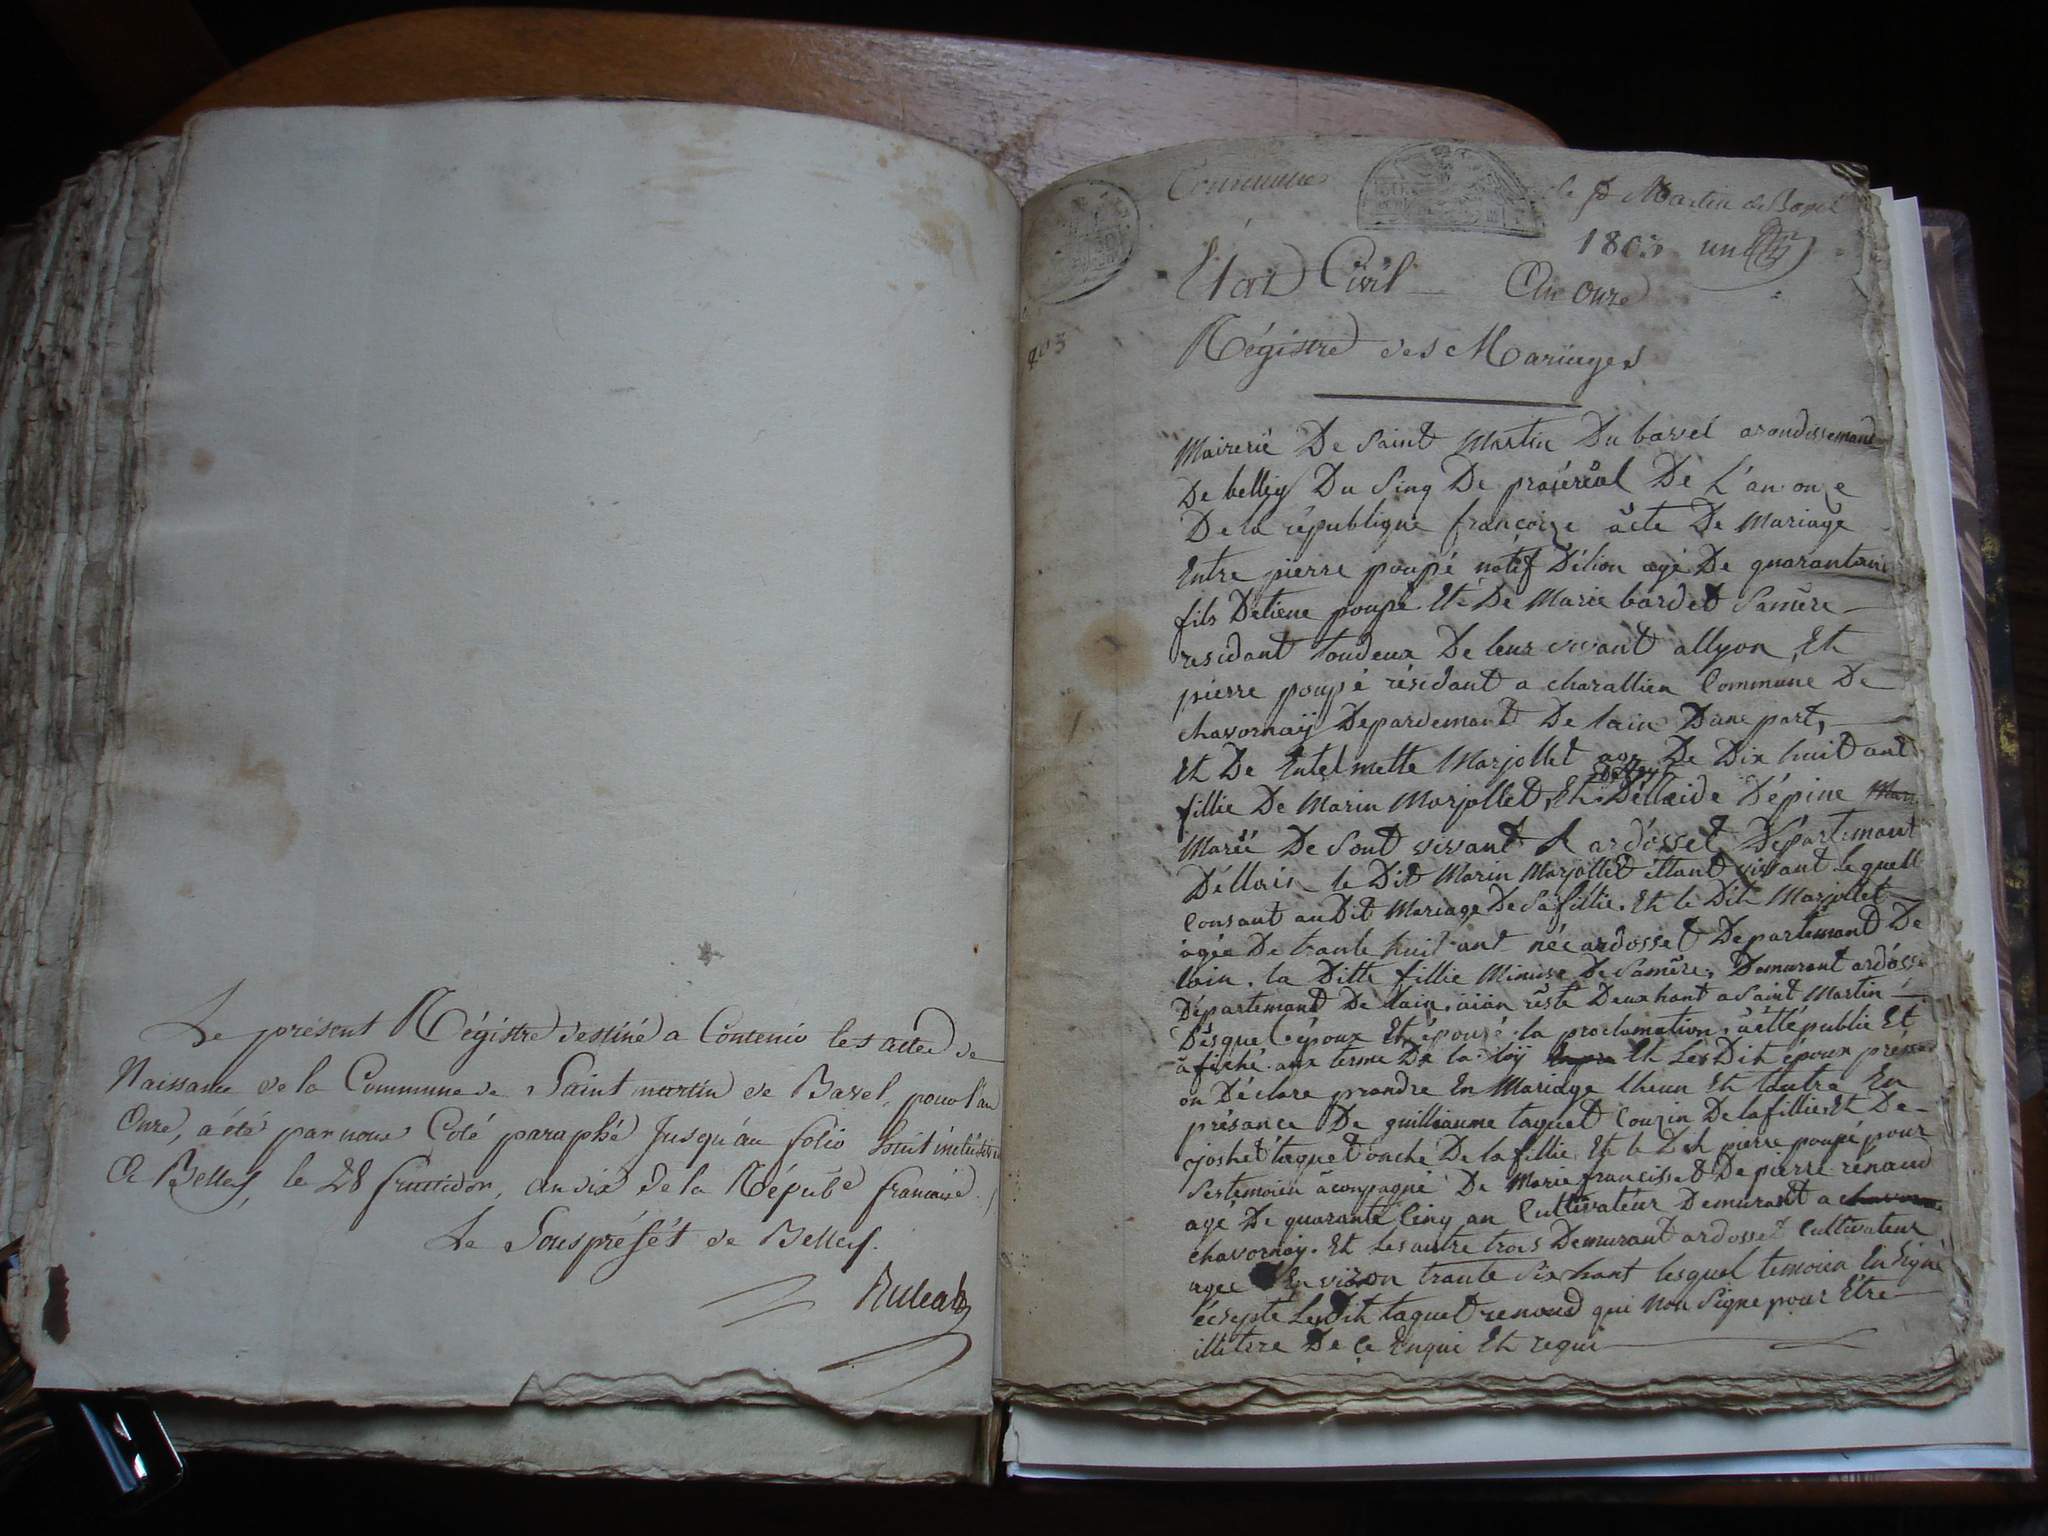 Le présent Régistre destiné a Contenir les actes de
Naissance de la Commune de Saint martin de Bavel, pour l'an
Onze, a été par nous Coté paraphé Jusqu'au folio huit inclusiv
A Belley, le 28 fructidor, an dix de la Répub^e francaise
Le Souspréfét de Belley.
Commune de S^t Martin de Bavel
1803 un
Etat Civil An Onze
803
Régistre des Mariages
Mairerië De Saint Martin Du bavel arondissemant
De belley Du Sinq De praiéreal De L'an onze
De la républiqúe francoize acte De Mariage
Entre pierre poupé nótif Délion agé De quarantan
fils Detiene poupé Et De Marie bardet Samére
residant toudeux De leur vivant allyon, Et
pierre poupé résidant a charallien Commune De
chavornaÿ Depardemant De lain Dune part,
Et De Entelmette Marjollet age De Dix huit ant
fillie De Marin Marjollet, Et Déllaide D'épine Mar
Mariè De Sont vivant A ardósset Départemant
Déllain le Dit Marin Marjollet étlant vivant lequell
Consant audit Mariage De Safillie. Et le Dit Marjollet
àgée De trante huit ant née ardósset Departemant De
lain. la Ditte fillie Mineure De Samére, Demurant ardósse
Départemant De lain, aian réste Deux hant a Saint Martin
Désque l'époux Et épousé. la proclamation. a étté publié Et
áfiché aux terme De la loy Et Les Dit époux presen
on Déclare prandre En Mariage lheun Et lautre En
présance De guilliaume taquet Couzin De lafillie Et De
joshet taquet oncle De la fillie Et le Dit pierre poupé pour
Sestemoien aconpagné De Marie francisset De pierre renaud
agé De quarante Cinq an Cultivateur Demurant a chavorna
chavornay. Et Les autre trois Demurant ardosset Cultivateur
agee En viron trante Six hant lesquel temoien En Signé
écsepte Le Dit taquet renoud qui Non Signe pour Etre
illitere De Ce Enquï Et requi